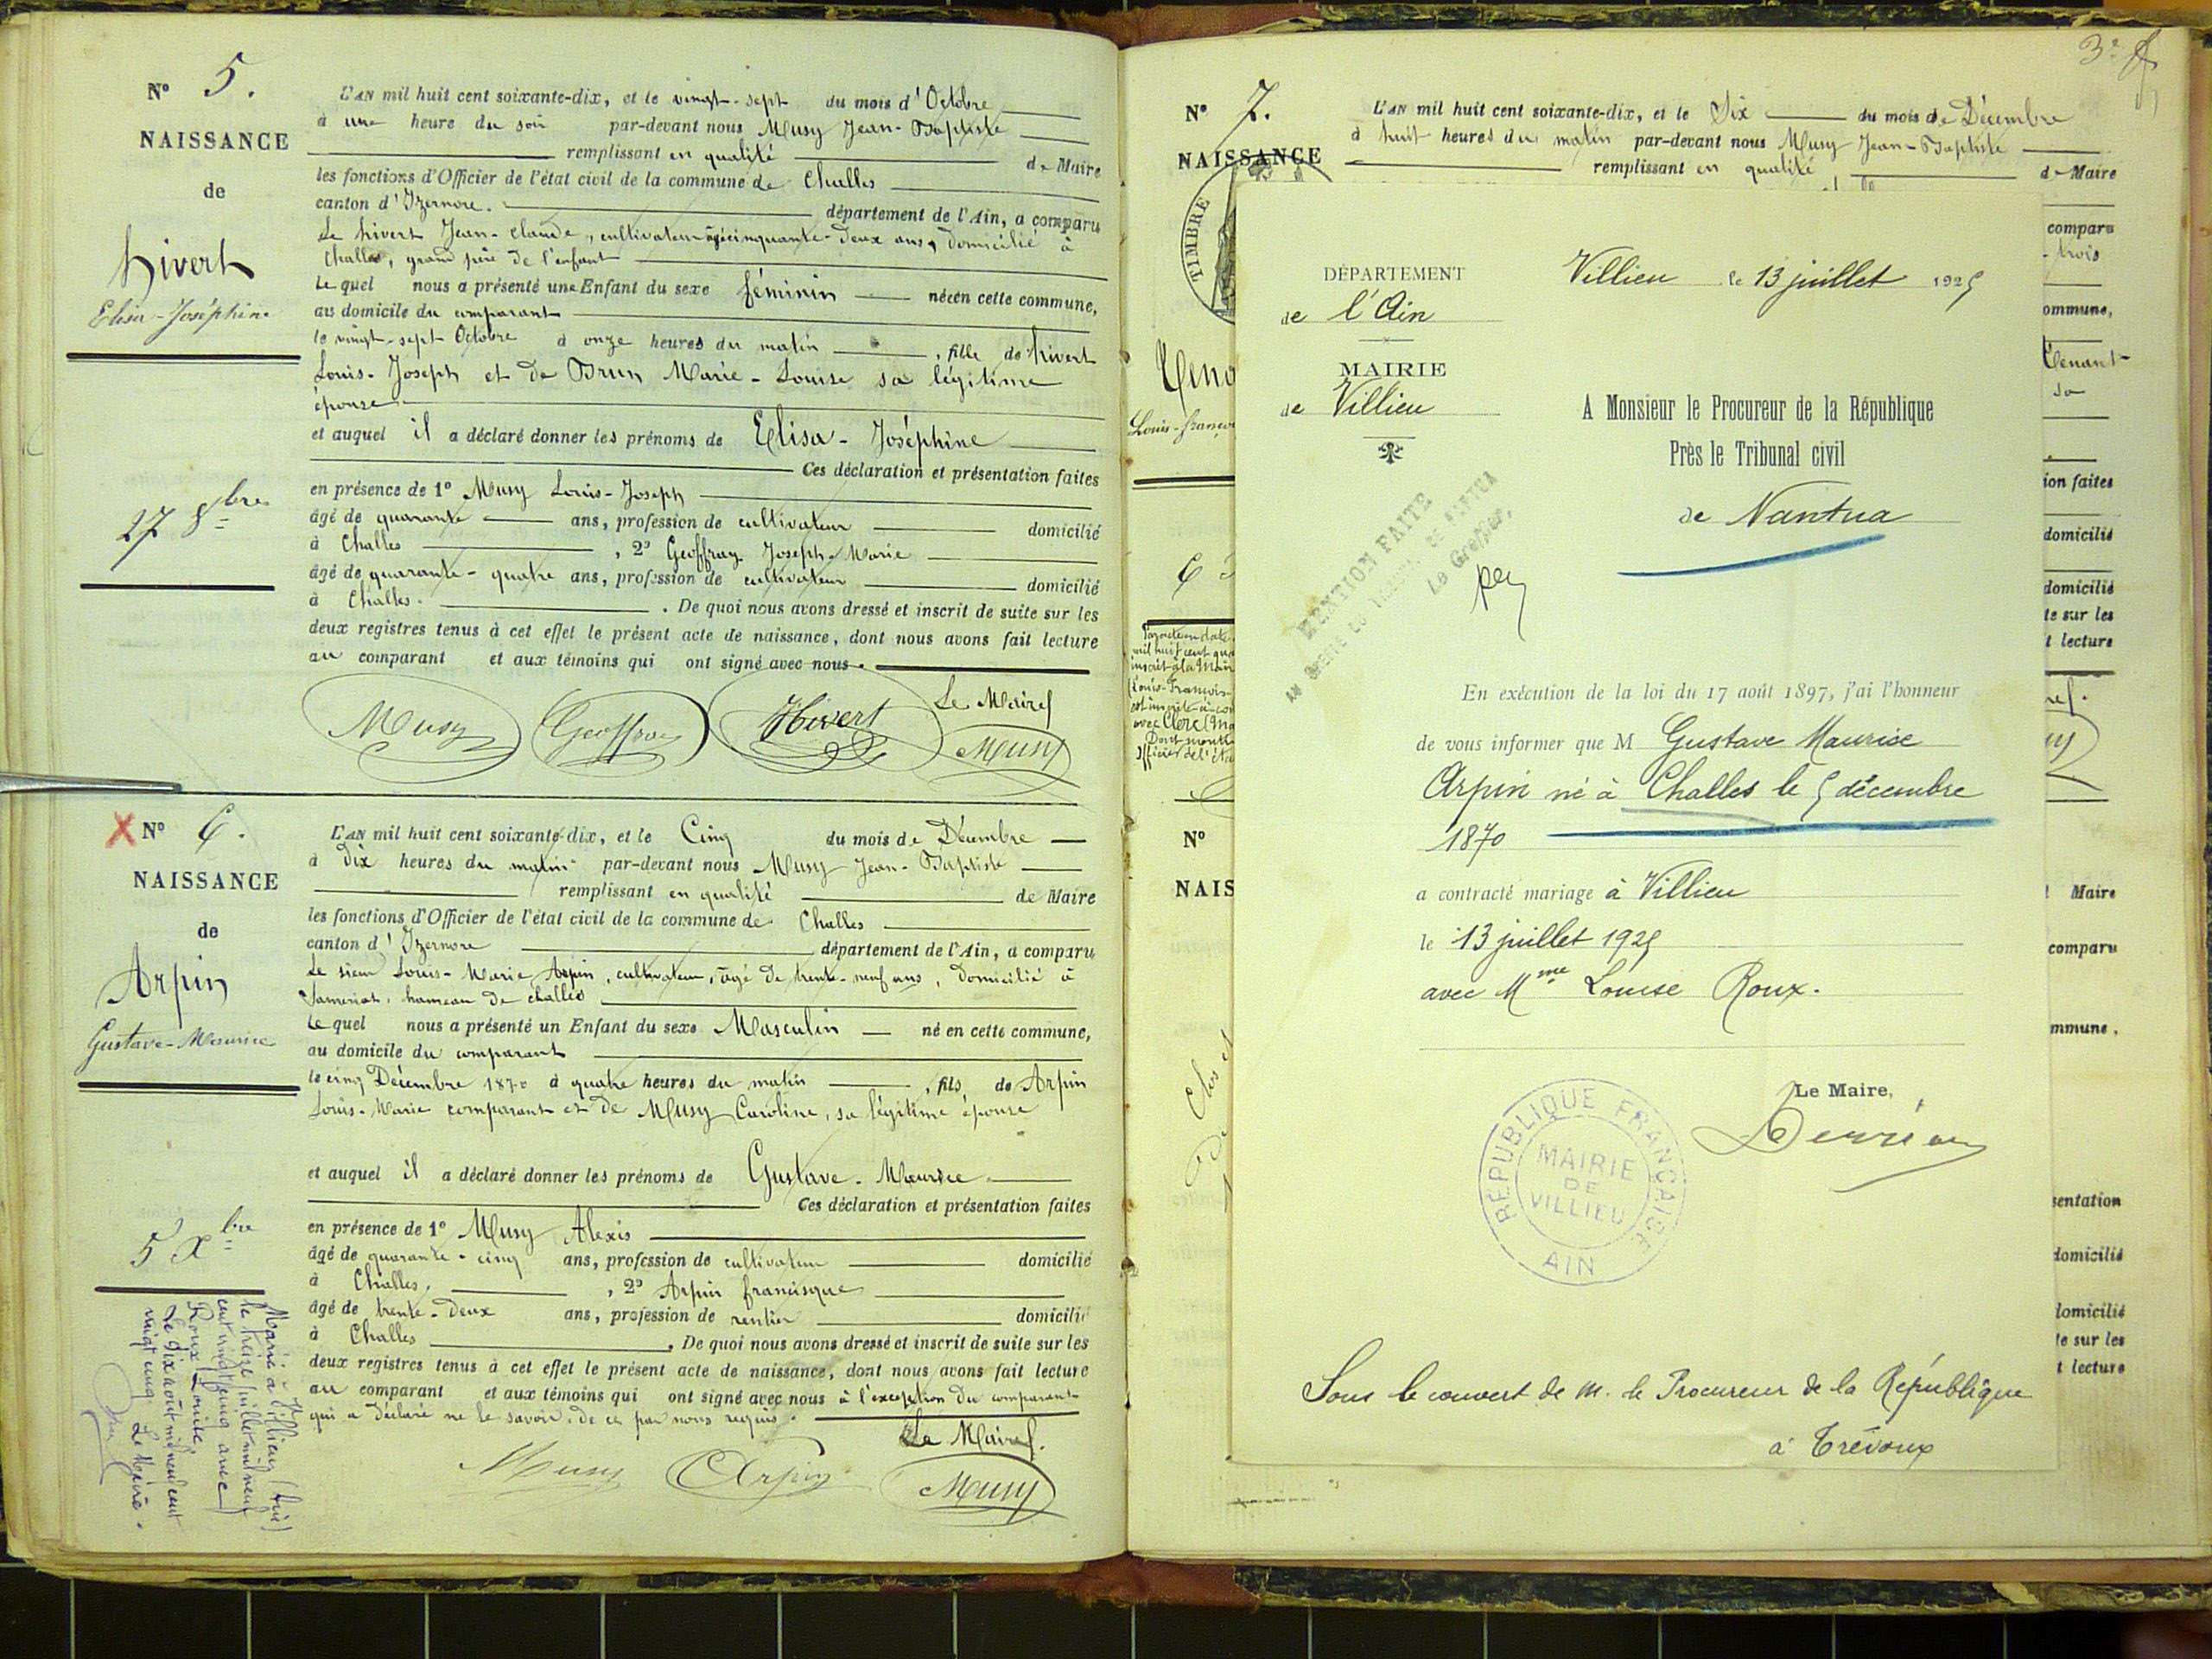 N° 5.
NAISSANCE
de
hivert
Elisa-Joséphine
27 8bre
L'AN mil huit cent soixante-dix, et le vingt-sept du mois d'Octobre
à une heure du soir par-devant nous Musy Jean-Baptiste
remplissant en qualité de Maire
les fonctions d'Officier de l'état civil de la commune de Challes
canton d'Izernore. département de l'Ain, a comparu
Le hivert Jean-Claude, cultivateur âgé cinquante-deux ans, domicilié à
Challes, grand père de l'enfant
Lequel nous a présenté une Enfant du sexe féminin née en cette commune,
au domicile du comparant
le vingt-sept Octobre à onze heures du matin, fille de hivert
Louis-Joseph et de Brun Marie-Louise sa légitime
épouse
et auquel il a déclaré donner les prénoms de Elisa-Joséphine
Ces déclaration et présentation faites
en présence de 1° Musy Louis-Joseph
âgé de quarante ans, profession de cultivateur domicilié
à Challes, 2° Geoffray Joseph-Marie
âgé de quarante-quatre ans, profession de cultivateur domicilié
à Challes. De quoi nous avons dressé et inscrit de suite sur les
deux registres tenus à cet effet le présent acte de naissance, dont nous avons fait lecture
au comparant et aux témoins qui ont signé avec nous.
Le Maire
Musy Geoffray Hivert Musy
X N° 6.
NAISSANCE
de
Arpin
Gustave-Maurice
5 Xbre
L'AN mil huit cent soixante-dix, et le Cinq du mois de Décembre
à Dix heures du matin par-devant nous Musy Jean-Baptiste
remplissant en qualité de Maire
les fonctions d'Officier de l'état civil de la commune de Challes
canton d'Izernore département de l'Ain, a comparu
Le sieur Louis-Marie Arpin, cultivateur, âgé de trente-neuf ans, domicilié à
hameau de challes
Lequel nous a présenté un Enfant du sexe Masculin né en cette commune,
au domicile du comparant
le cinq Décembre 1870 à quatre heures du matin, fils de Arpin
Louis-Marie comparant et de Musy Caroline, sa légitime épouse
et auquel il a déclaré donner les prénoms de Gustave-Maurice
Ces déclaration et présentation faites
en présence de 1° Musy Alexis
âgé de quarante-cinq ans, profession de cultivateur domicilié
à Challes, 2° Arpin francisque
âgé de trente-deux ans, profession de rentier domicilié
à Challes. De quoi nous avons dressé et inscrit de suite sur les
deux registres tenus à cet effet le présent acte de naissance, dont nous avons fait lecture
au comparant et aux témoins qui ont signé avec nous à l'exception du comparant
qui a déclaré ne le savoir, de ce par nous requis.
Le Maire.
Musy Arpin Musy
Marié à Villieu (Ain)
le treize juillet mil neuf
cent vingt cinq avec
Roux Louise,
Le dix août mil neuf cent
vingt cinq Le Maire.
N° 7.
NAISSANCE
TIMBRE
L'AN mil huit cent soixante-dix, et le Six du mois de Décembre
à huit heures du matin par-devant nous Musy Jean-Baptiste
remplissant en qualité de Maire
comparu
trois
ommune,
sa
ion faites
domicilié
domicilié
te sur les
t lecture
N°
NAIS
Maire
comparu
mmune,
sentation
domicilié
domicilié
te sur les
t lecture
DÉPARTEMENT
de l'Ain
MAIRIE
de Villieu
Villieu le 13 juillet 1925
A Monsieur le Procureur de la République
Près le Tribunal civil
de Nantua
MENTION FAITE
Le Greffier,
En exécution de la loi du 17 août 1897, j'ai l'honneur
de vous informer que M Gustave Maurise
Arpin né à Challes le 5 décembre
1870
a contracté mariage à Villieu
le 13 juillet 1925
avec Mme Louise Roux.
Le Maire,
RÉPUBLIQUE FRANÇAISE
MAIRIE
DE
VILLIEU
AIN
Sous le couvert de M. le Procureur de la République
à Trévoux